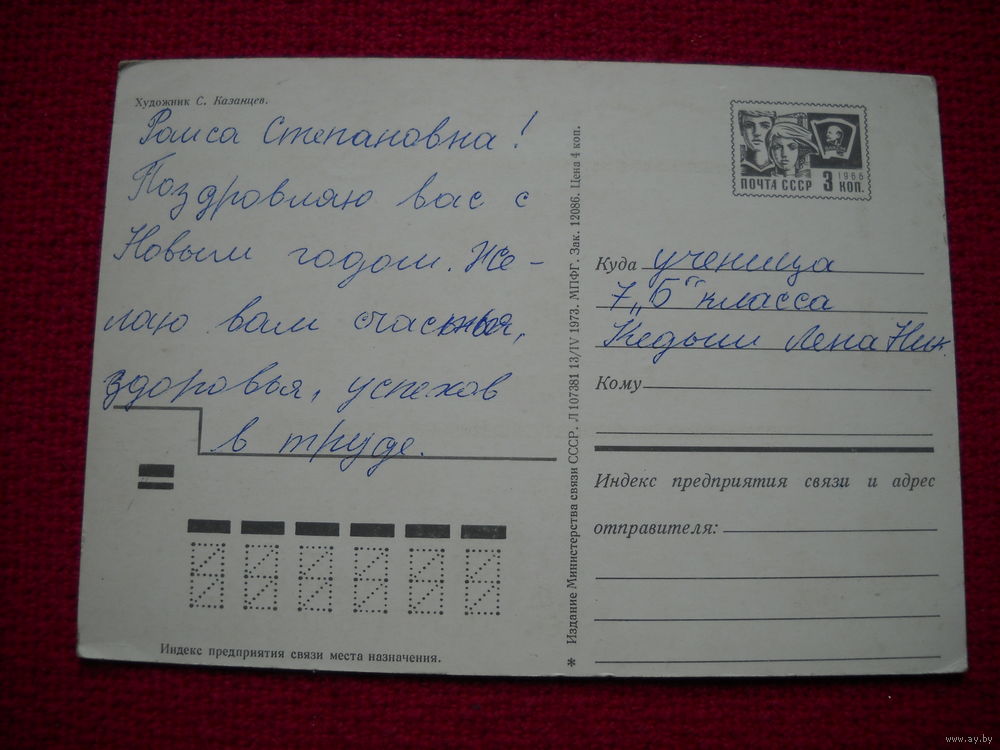 Художник С. Казанцев.
Раиса Степановна!
Поздровляю вас с
Новым годом. Же-
лаю вам счастья,
здоровья, успехов
в труде.
Индекс предприятия связи места назначения.
* Издание Министерства связи СССР. Л 107381 13/IV 1973. МПФГ. Зак. 12086. Цена 4 коп.
1966
ПОЧТА СССР 3 КОП.
Куда ученица
7 „Б" класса
Лена Ник.
Кому
Индекс предприятия связи и адрес
отправителя:
www.ay.by